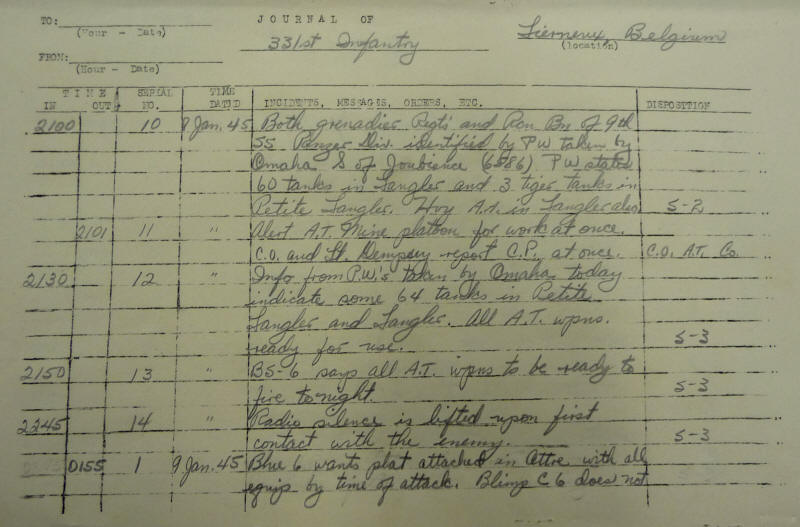 TO: JOURNAL OF Lierneux, Belgium
(Hour - Date) 331st Infantry (location)
FROM:
(Hour - Date)
TIME SERIAL TIME
IN OUT NO. DATED INCIDENTS, MESSAGES, ORDERS, ETC. DISPOSITION
2100 10 8 Jan. 45 Both grenadier Regts and Rcn Bn of 9th
SS Panzer Div. identified by PW taken by
Omaha S of Joubieval (6886) PW states
60 tanks in Langler and 3 tiger tanks in
Petite Langler. Hvy A.t. in Langler also S-2
2101 11 " Alert A.T. Mine platoon for work at once.
C.O. and Lt. Dempsey report C.P. at once. C.O. A.T. Co.
2130 12 " Info from P.W.'s taken by Omaha today
indicate some 64 tanks in Petite
Langler and Langler. All A.T. wpns.
ready for use. S-3
2150 13 " BS-6 says all A.T. wpns to be ready to
fire to-night. S-3
2245 14 " Radio silence is lifted upon first
contact with the enemy. S-3
0155 1 9 Jan. 45 Blue 6 wants plat attached in with all
equip by time of attack. Blimp C 6 does not